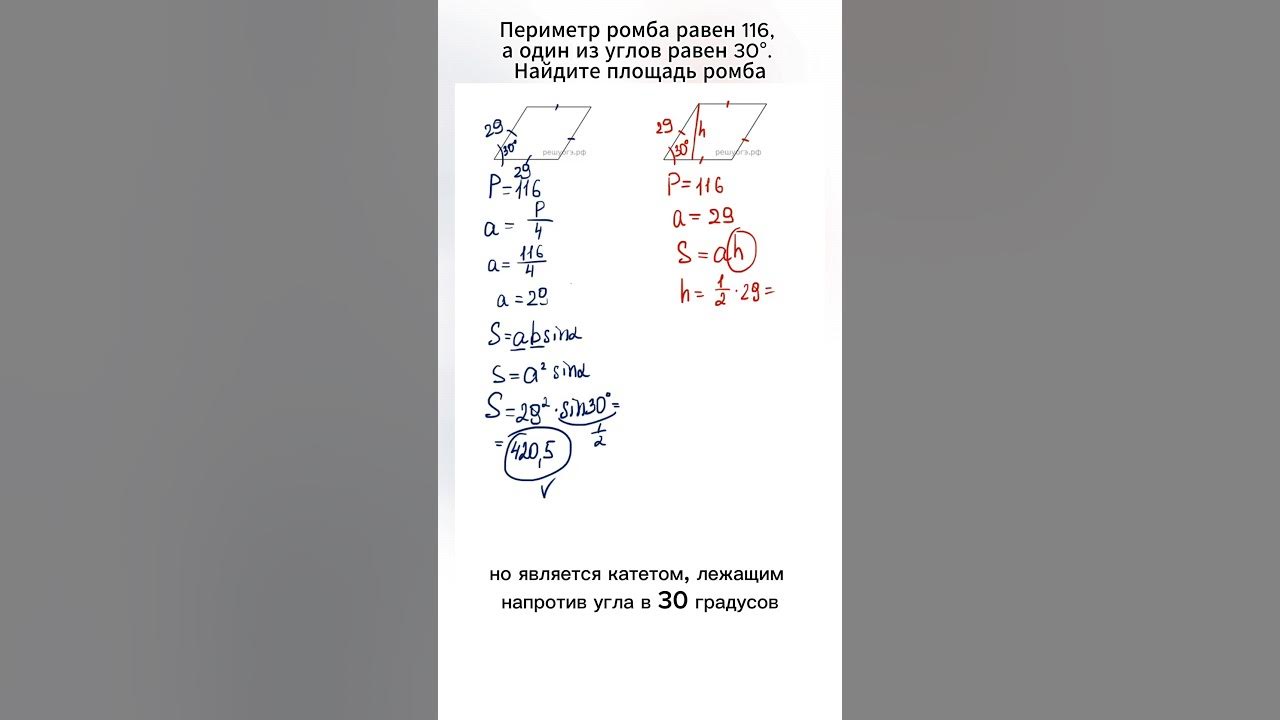 Периметр ромба равен 116,
а один из углов равен 30°.
Найдите площадь ромба
29
30°
решуогэ.рф
29
P=116
a = P/4
a = 116/4
a = 29
S=absinα
S=a² sinα
S=29²·sin30°=
1/2
= 420,5
29
h
30°
решуогэ.рф
P=116
a = 29
S = ah
h = 1/2 · 29 =
но является катетом, лежащим
напротив угла в 30 градусов